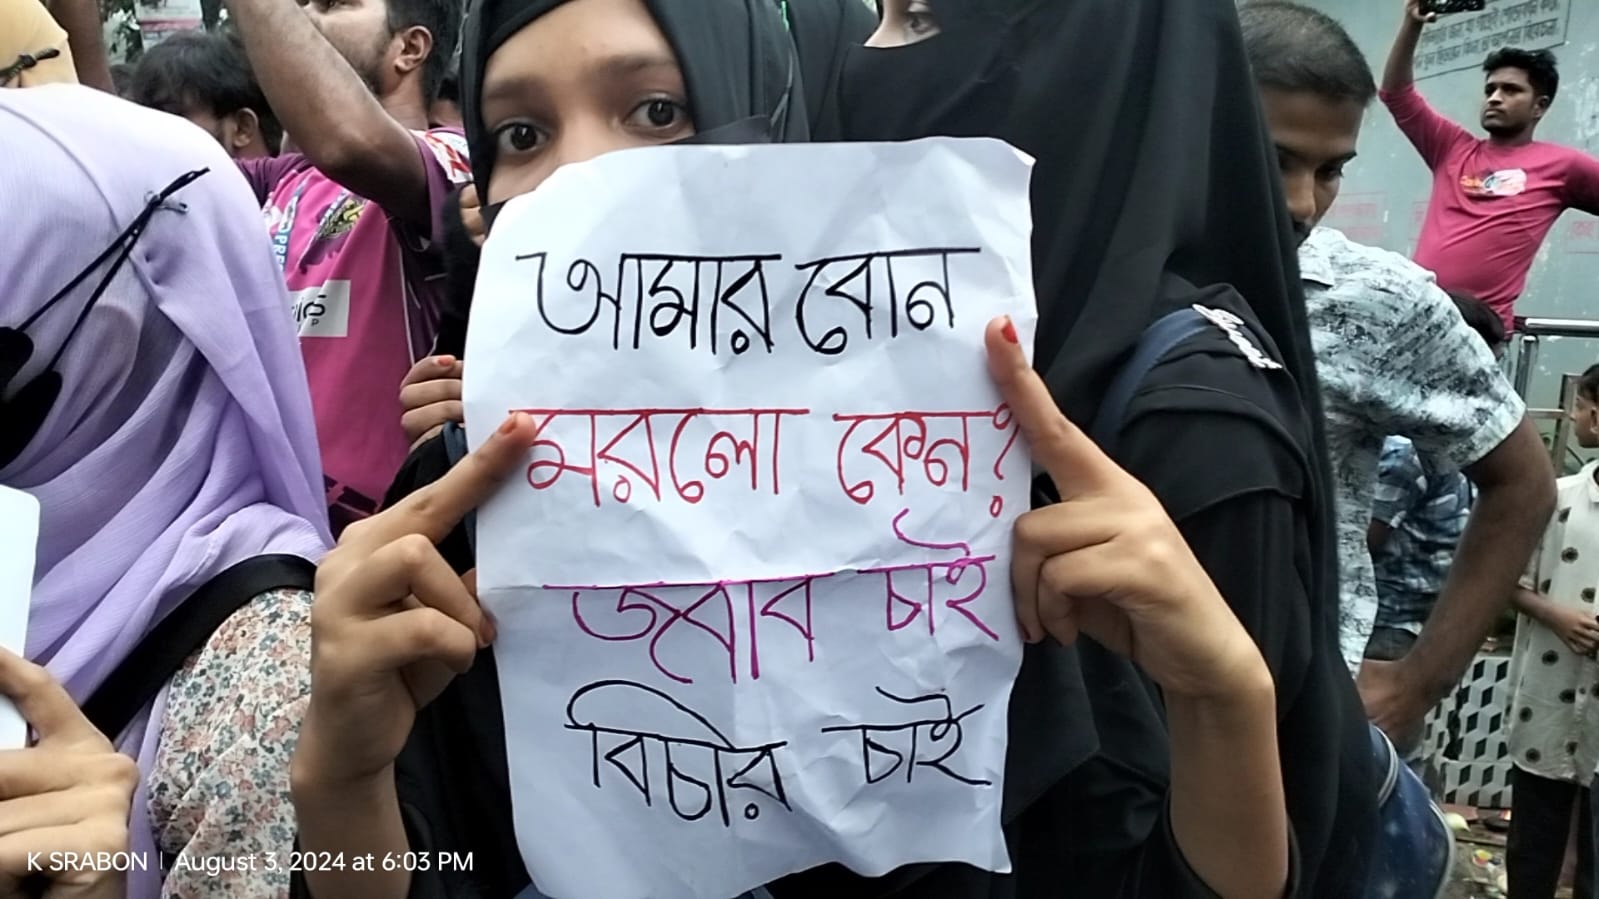 আমার বোন
মরলো কেন?
জবাব চাই
বিচার চাই
K SRABON | August 3, 2024 at 6:03 PM